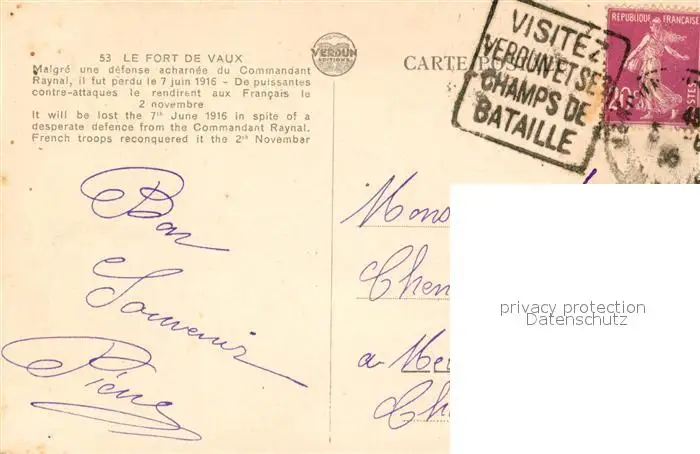 53 LE FORT DE VAUX
Malgré une défense acharnée du Commandant
Raynal, il fut perdu le 7 juin 1916 - De puissantes
contre-attaques le rendirent aux Français le
2 novembre
It will be lost the 7th June 1916 in spite of a
desperate defence from the Commandant Raynal.
French troops reconquered it the 2nd November
VERDUN
EDITIONS
CARTE
VISITEZ
VERDUN ET SES
CHAMPS DE
BATAILLE
REPUBLIQUE FRANÇAISE
20c
POSTES
Bon
Souvenir
Pierre
privacy protection
Datenschutz